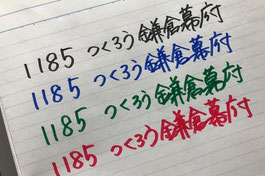 1185 つくろう鎌倉幕府
1185 つくろう鎌倉幕府
1185 つくろう鎌倉幕府
1185 つくろう鎌倉幕府